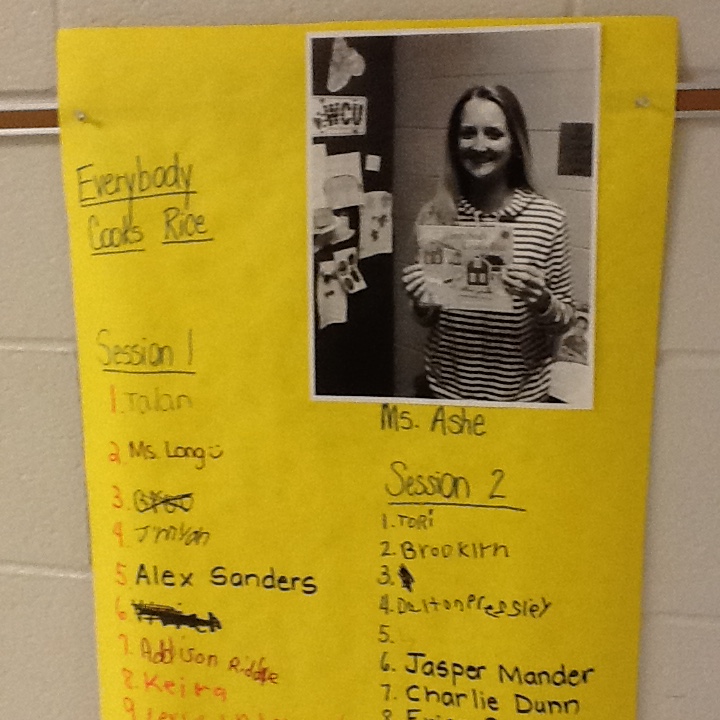 Everybody
Cooks Rice
WCU
Ms. Ashe
Session 1
1. Talan
2. Ms. Long
3.
4. J'miyah
5. Alex Sanders
6.
7. Addison Riddle
8. Keira
9.
Session 2
1. TORi
2. Brooklrn
3.
4. Dalton Pressley
5.
6. Jasper Mander
7. Charlie Dunn
8.